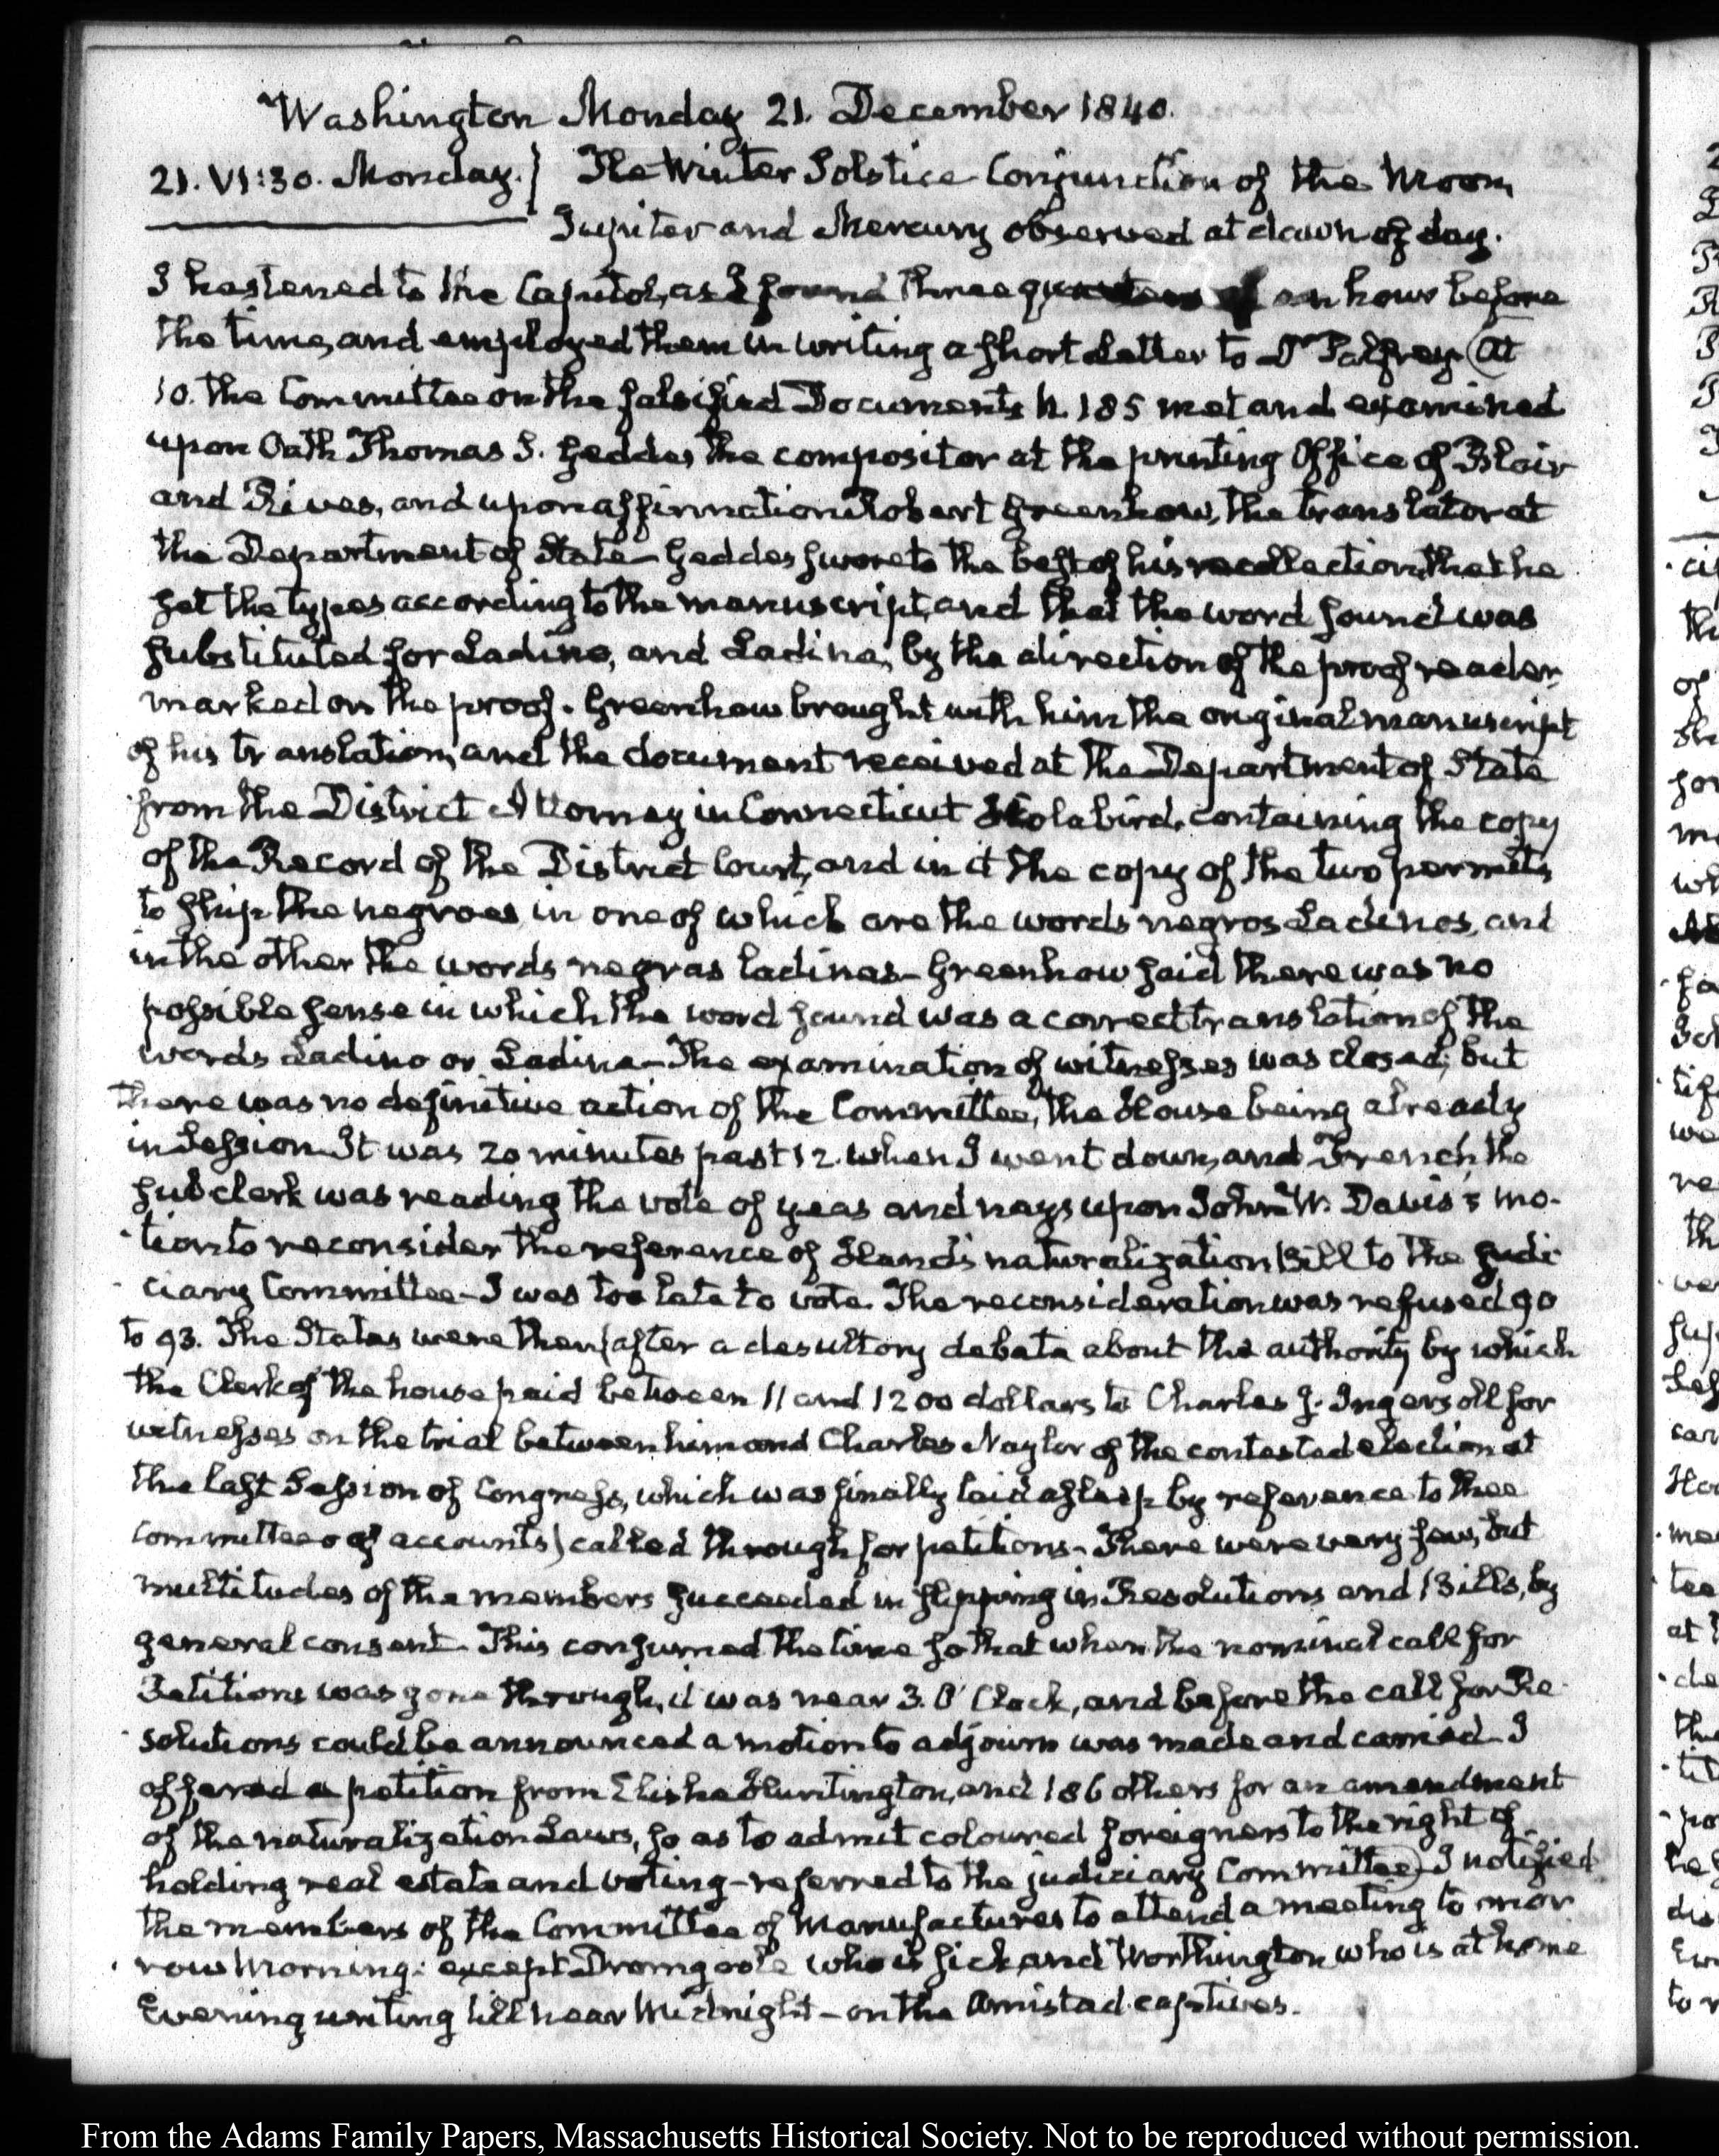 Washington Monday 21. December 1840.
21. VI:30. Monday.} The Winter Solstice Conjunction of the Moon,
Jupiter and Mercury observed at dawn of day.
I hastened to the Capitol, as I found three quarters of an hour before
the time, and employed them in writing a short Letter to Dr Palfrey. At
10. the Committee on the falsified Documents N. 185 met and examined
upon Oath Thomas S. Geddes, the compositor at the printing Office of Blair
and Rives, and upon affirmation Robert Greenhow, the translator at
the Department of State— Geddes swore to the best of his recollection, that he
set the types according to the manuscript, and that the word sound was
substituted for Ladino, and Ladina, by the direction of the proof reader,
marked on the proof. Greenhow brought with him the original manuscript
of his translation, and the document received at the Department of State
from the District Attorney in Connecticut Holabird, containing the copy
of the Record of the District Court, and in it the copy of the two permits
to ship the negroes in one of which are the words negros Ladinos, and
in the other the words negras ladinas— Greenhow said there was no
possible sense in which the word sound was a correct translation of the
words Ladino or Ladina— The examination of witnesses was closed; but
there was no definitive action of the Committee, the House being already
in Session. It was 20 minutes past 12. when I went down, and French the
sub clerk was reading the vote of yeas and nays upon John W. Davis's mo-
tion to reconsider the reference of Hand's naturalization Bill to the Judi
ciary Committee— I was too late to vote. The reconsideration was refused 90
to 93. The States were then (after a desultory debate about the authority by which
the Clerk of the house paid between 11 and 1200 dollars to Charles J. Ingersoll for
witnesses on the trial between him and Charles Naylor of the contested election at
the last Session of Congress, which was finally laid asleep by reference to thee
Committee of accounts) called through for petitions— There were very few, but
multitudes of the members succeeded in slipping in Resolutions and Bills, by
general consent— This consumed the time so that when the nominal call for
Petitions was gone through, it was near 3. O'Clock, and before the call for Re-
solutions could be announced a motion to adjourn was made and carried— I
offered a petition from Elisha Huntington, and 186 others for an amendment
of the naturalization Laws, so as to admit coloured foreigners to the right of
holding real estate and voting— referred to the judiciary Committee. I notified
the members of the Committee of Manufactures to attend a meeting to mor
row Morning: except Dromgoole who is sick and Worthington who is at home
Evening writing till near Midnight— on the Amistad captives.
2
ci
th
of
for
mo
wh
we
re
th
car
tee
at
de
the
he
dis
to
From the Adams Family Papers, Massachusetts Historical Society. Not to be reproduced without permission.